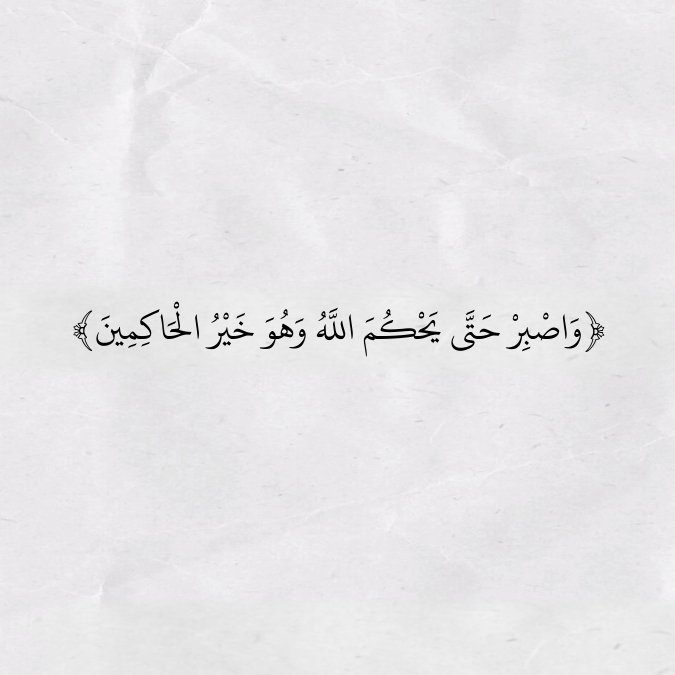 ﴿وَاصْبِرْ حَتَّى يَحْكُمَ اللَّهُ وَهُوَ خَيْرُ الْحَاكِمِينَ﴾